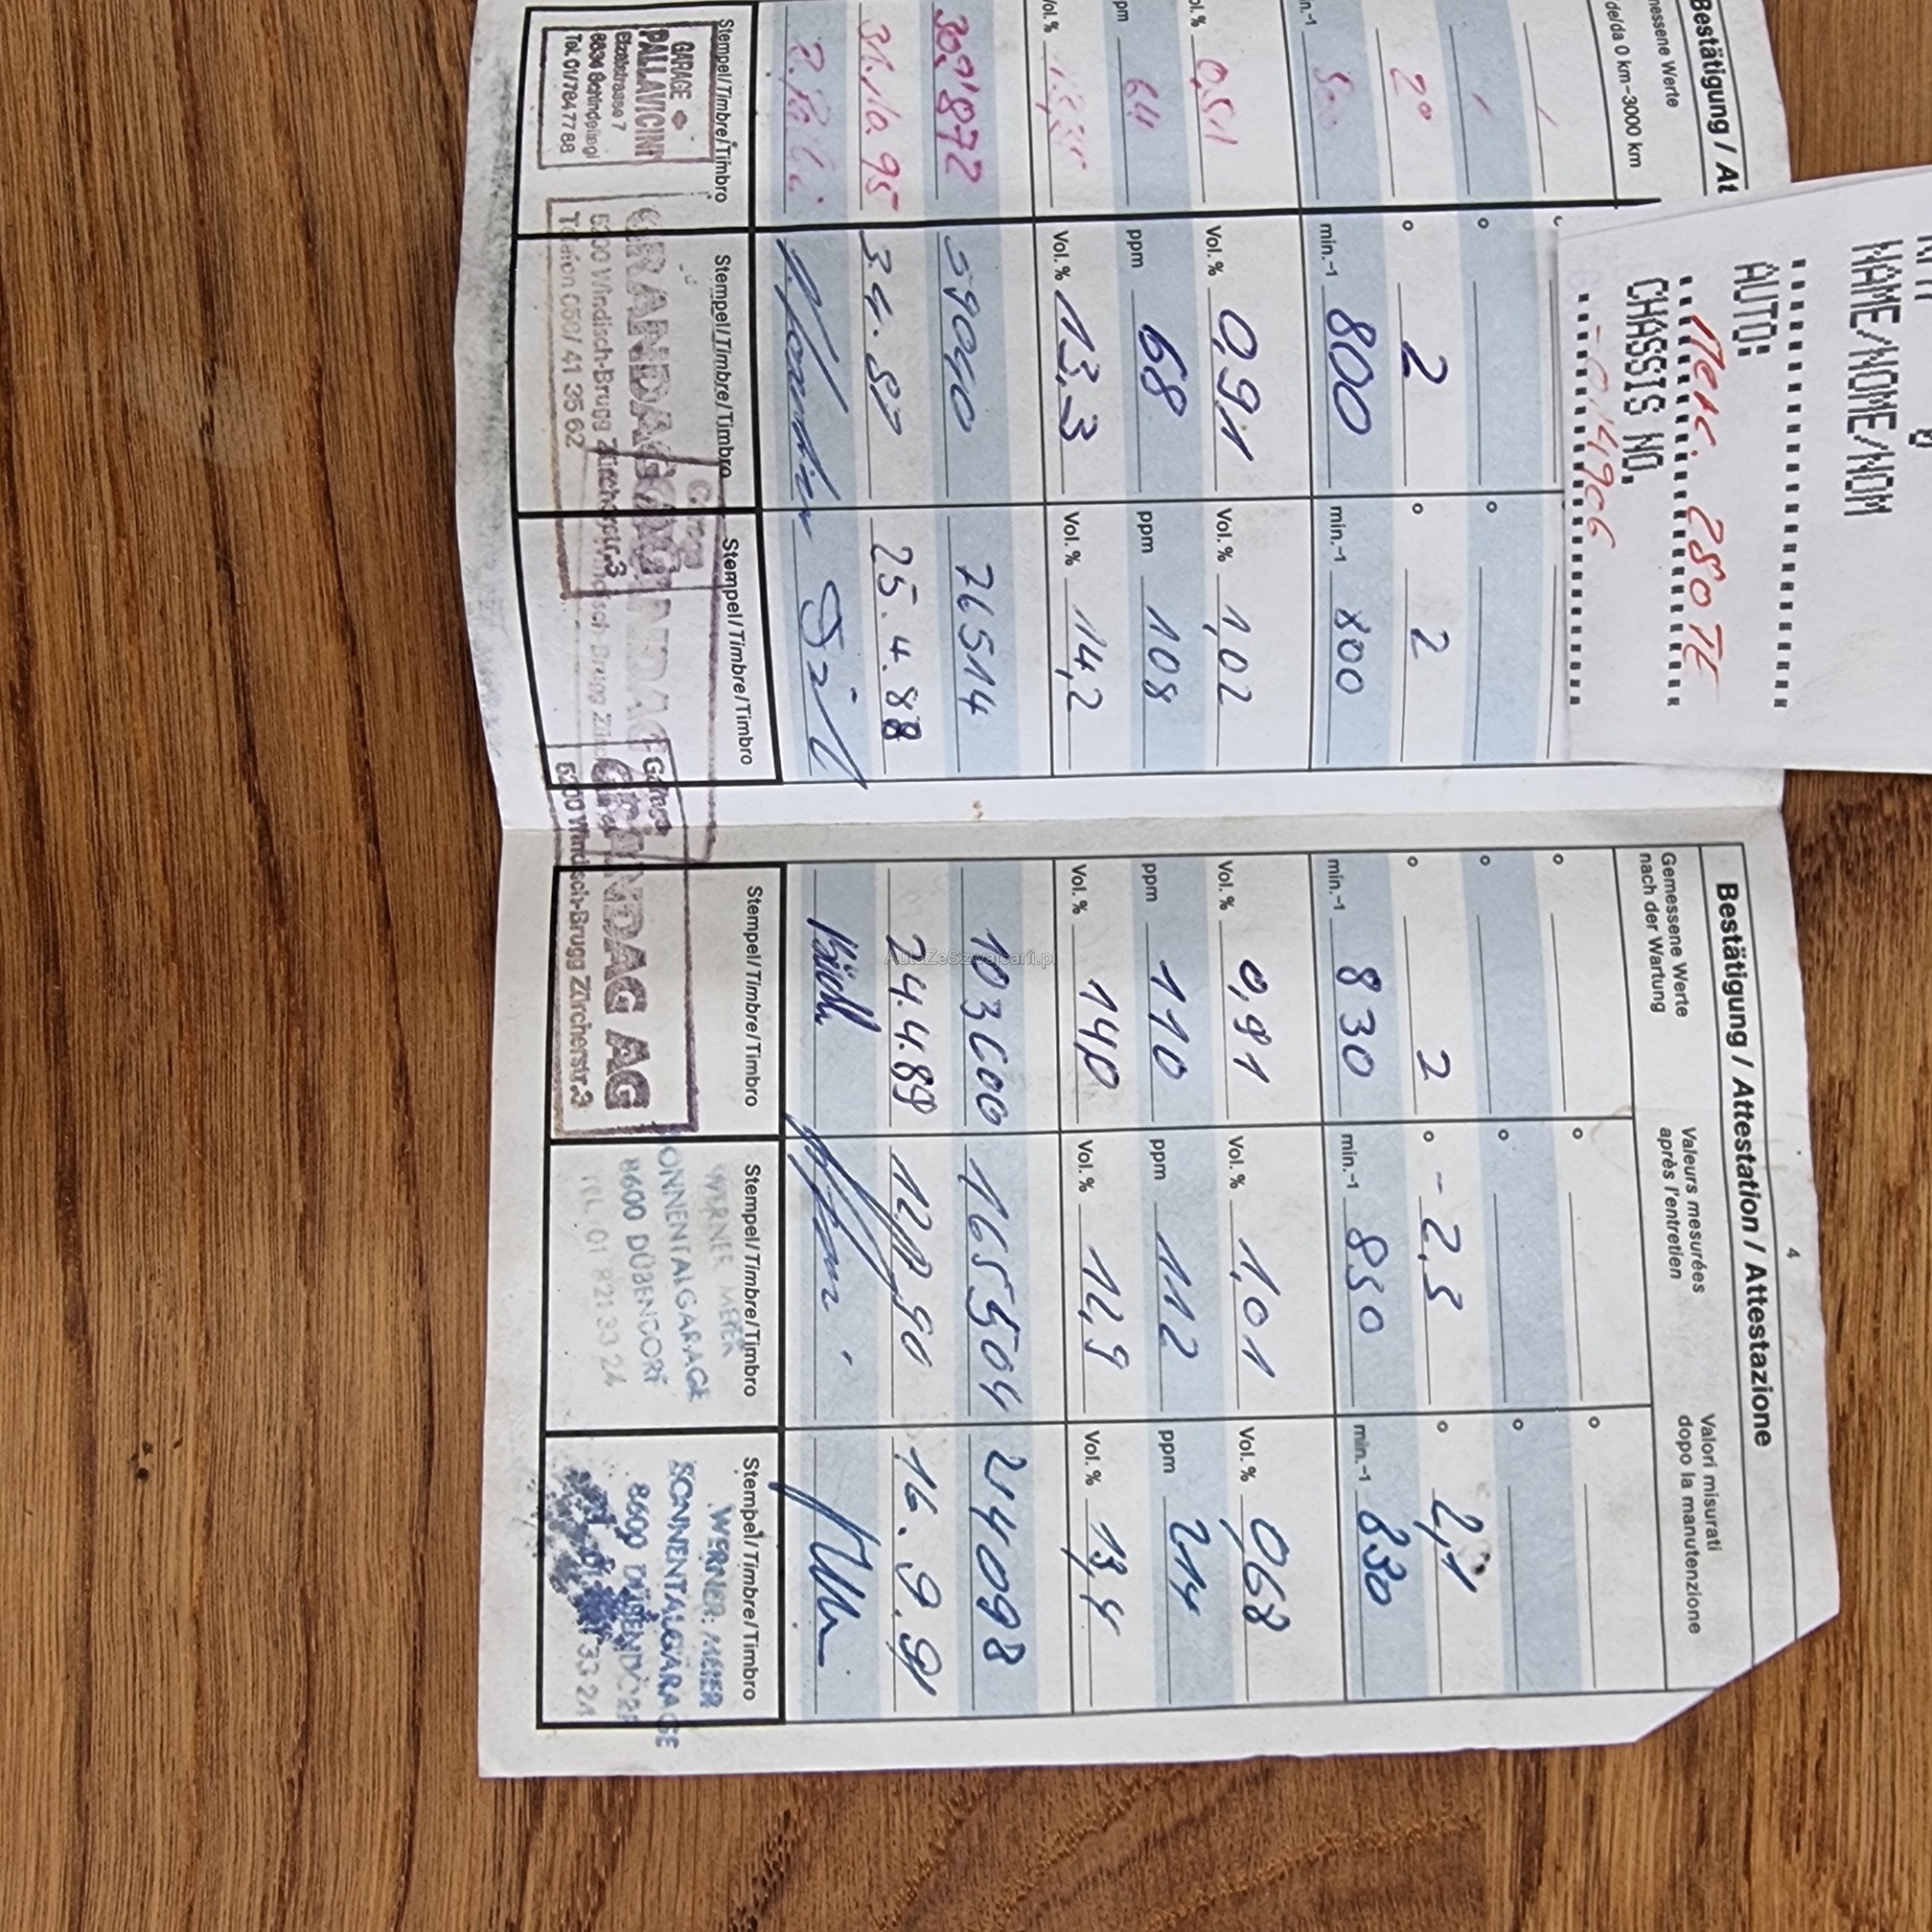 Bestätigung / At
messene Werte
de/da 0 km-3000 km
2°
0,51
64
309'872
31.10.95
Stempel/Timbre/Timbro
GARAGE
PALLAVICINI
Elzelstrasse 7
8834 Schindellegi
Tel. 01/784 77 88
° 2
min.-1 800
Vol. % 0,91
ppm 68
Vol. % 13,3
59040
Stempel/Timbre/Timbro
GRANDAG
5200 Windisch-Brugg Zürcherstr.3
Telefon 056/ 41 35 62
° 2
min.-1 800
Vol. % 1,02
ppm 108
Vol. % 14,2
76514
25.4.88
Stempel/Timbre/Timbro
Garage
NAME/NOME/NOM
AUTO:
Merc. 280 TE
CHASSIS NO.
014906
4
Bestätigung / Attestation / Attestazione
Gemessene Werte
nach der Wartung
Valeurs mesurées
après l'entretien
Valori misurati
dopo la manutenzione
° 2 ° -2,5 ° 2,1
min.-1 830 min.-1 850 min.-1 830
Vol. % 0,91 Vol. % 1,01 Vol. % 0,68
ppm 110 ppm 112 ppm 214
Vol. % 14,0 Vol. % 12,9 Vol. % 13,4
103600 165504 214098
24.4.89 16.9.91
AutaZeSzwajcarii.pl
Stempel/Timbre/Timbro Stempel/Timbre/Timbro Stempel/Timbre/Timbro
Garage
GRANDAG AG
5200 Windisch-Brugg Zürcherstr.3
WERNER MEIER
SONNENTALGARAGE
8600 DÜBENDORF
TEL. 01 821 33 24
WERNER MEIER
SONNENTALGARAGE
8600 DÜBENDORF
33 24